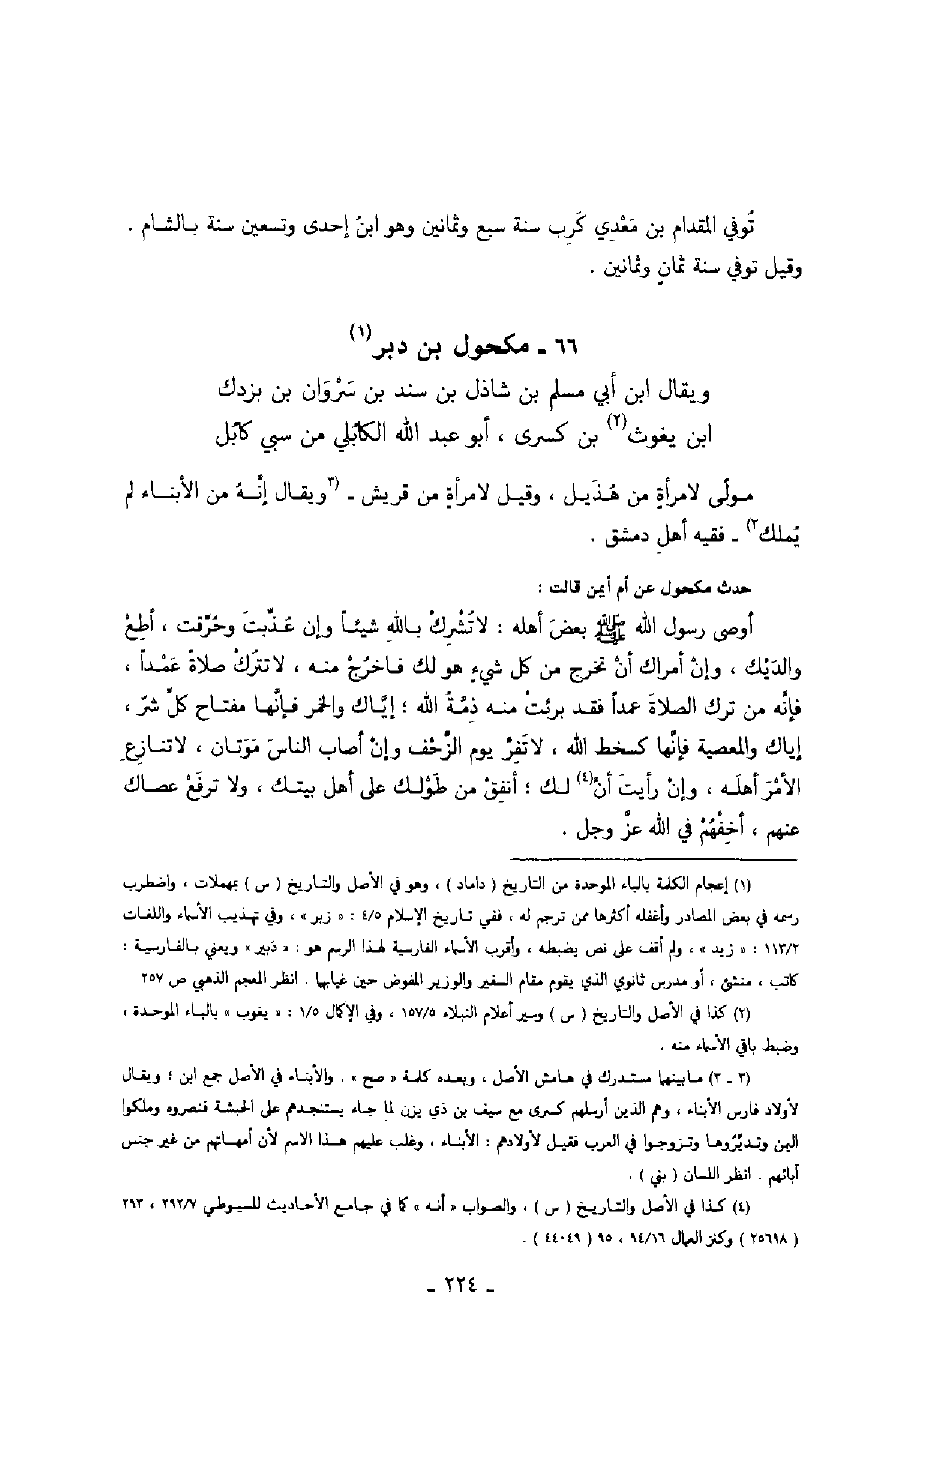 تُوفي المقدام بن مَعْدِي كَرِب سنة سبع وثمانين وهو ابنُ إحدى وتسعين سنة بالشام .
وقيل توفي سنة ثمانٍ وثمانين .
٦٦ ـ مكحول بن دبر(١)
ويقال ابن أبي مسلم بن شاذل بن سند بن سَرْوَان بن بزدك
ابن يغوث(٢) بن كسرى ، أبو عبد الله الكابُلي من سبي كابُل
مولًى لامرأةٍ من هُذَيل ، وقيل لامرأةٍ من قريش ـ (٣ويقال إنَّه من الأبناء لم
يُملك٣) ـ فقيه أهلِ دمشق .
حدث مكحول عن أم أيمن قالت :
أوصى رسول الله ﷺ بعضَ أهله : لاتُشْرِكْ بالله شيئاً وإن عُذِّبتَ وحُرِّقت ، أطِعْ
والدَيْك ، وإنْ أمراك أنْ تخرج من كل شيءٍ هو لك فاخرُجْ منه ، لاتترُكْ صلاةً عَمْداً ،
فإنَّه من ترك الصلاةَ عمداً فقد برئتْ منه ذمَّةُ الله ؛ إيَّاك والخمر فإنَّها مفتاح كلِّ شرّ ،
إياك والمعصية فإنَّها كسخط الله ، لاتَفِرَّ يوم الزَّحْف وإنْ أصاب الناسَ مَوَتان ، لاتنازعِ
الأمْرَ أهلَه ، وإنْ رأيتَ أنْ(٤) لك ؛ أنفِقْ من طَوْلك على أهل بيتك ، ولا ترفَعْ عصاك
عنهم ، أخِفْهُمْ في الله عزَّ وجل .
(١) إعجام الكلمة بالباء الموحدة من التاريخ ( داماد ) ، وهو في الأصل والتاريخ ( س ) بمهملات ، واضطرب
رسمه في بعض المصادر وأغفله أكثرها ممن ترجم له ، ففي تاريخ الإسلام ٤/٥ : « زبر » ، وفي تهذيب الأسماء واللغات
١١٣/٢ : « زيد » ، ولم أقف على نص بضبطه ، وأقرب الأسماء الفارسية لهذا الرسم هو : « دَبير » ويعني بالفارسية :
كاتب ، منشئ ، أو مدرس ثانوي الذي يقوم مقام السفير والوزير المفوض حين غيابها . انظر المعجم الذهبي ص ٢٥٧
(٢) كذا في الأصل والتاريخ ( س ) وسير أعلام النبلاء ١٥٧/٥ ، وفي الإكمال ١/٥ : « يغوب » بالباء الموحدة ،
وضبط باقي الأسماء منه .
(٣ ـ ٣) مابينهما مستدرك في هامش الأصل ، وبعده كلمة « صح » . والأبناء في الأصل جمع ابن ؛ ويقال
لأولاد فارس الأبناء ، وهم الذين أرسلهم كسرى مع سيف بن ذي يزن لما جاء يستنجدهم على الحبشة فنصروه وملكوا
اليمن وتديَّروها وتزوجوا في العرب فقيل لأولادهم : الأبناء ، وغلب عليهم هذا الاسم لأن أمهاتهم من غير جنس
آبائهم . انظر اللسان ( بني ) .
(٤) كذا في الأصل والتاريخ ( س ) ، والصواب « أنه » كما في جامع الأحاديث للسيوطي ٣٩٢/٧ ، ٣٩٣
( ٢٥٦٩٨ ) وكنز العمال ٩٤/١٦ ، ٩٥ ( ٤٤٠٤٩ ) .
ـ ٢٢٤ ـ